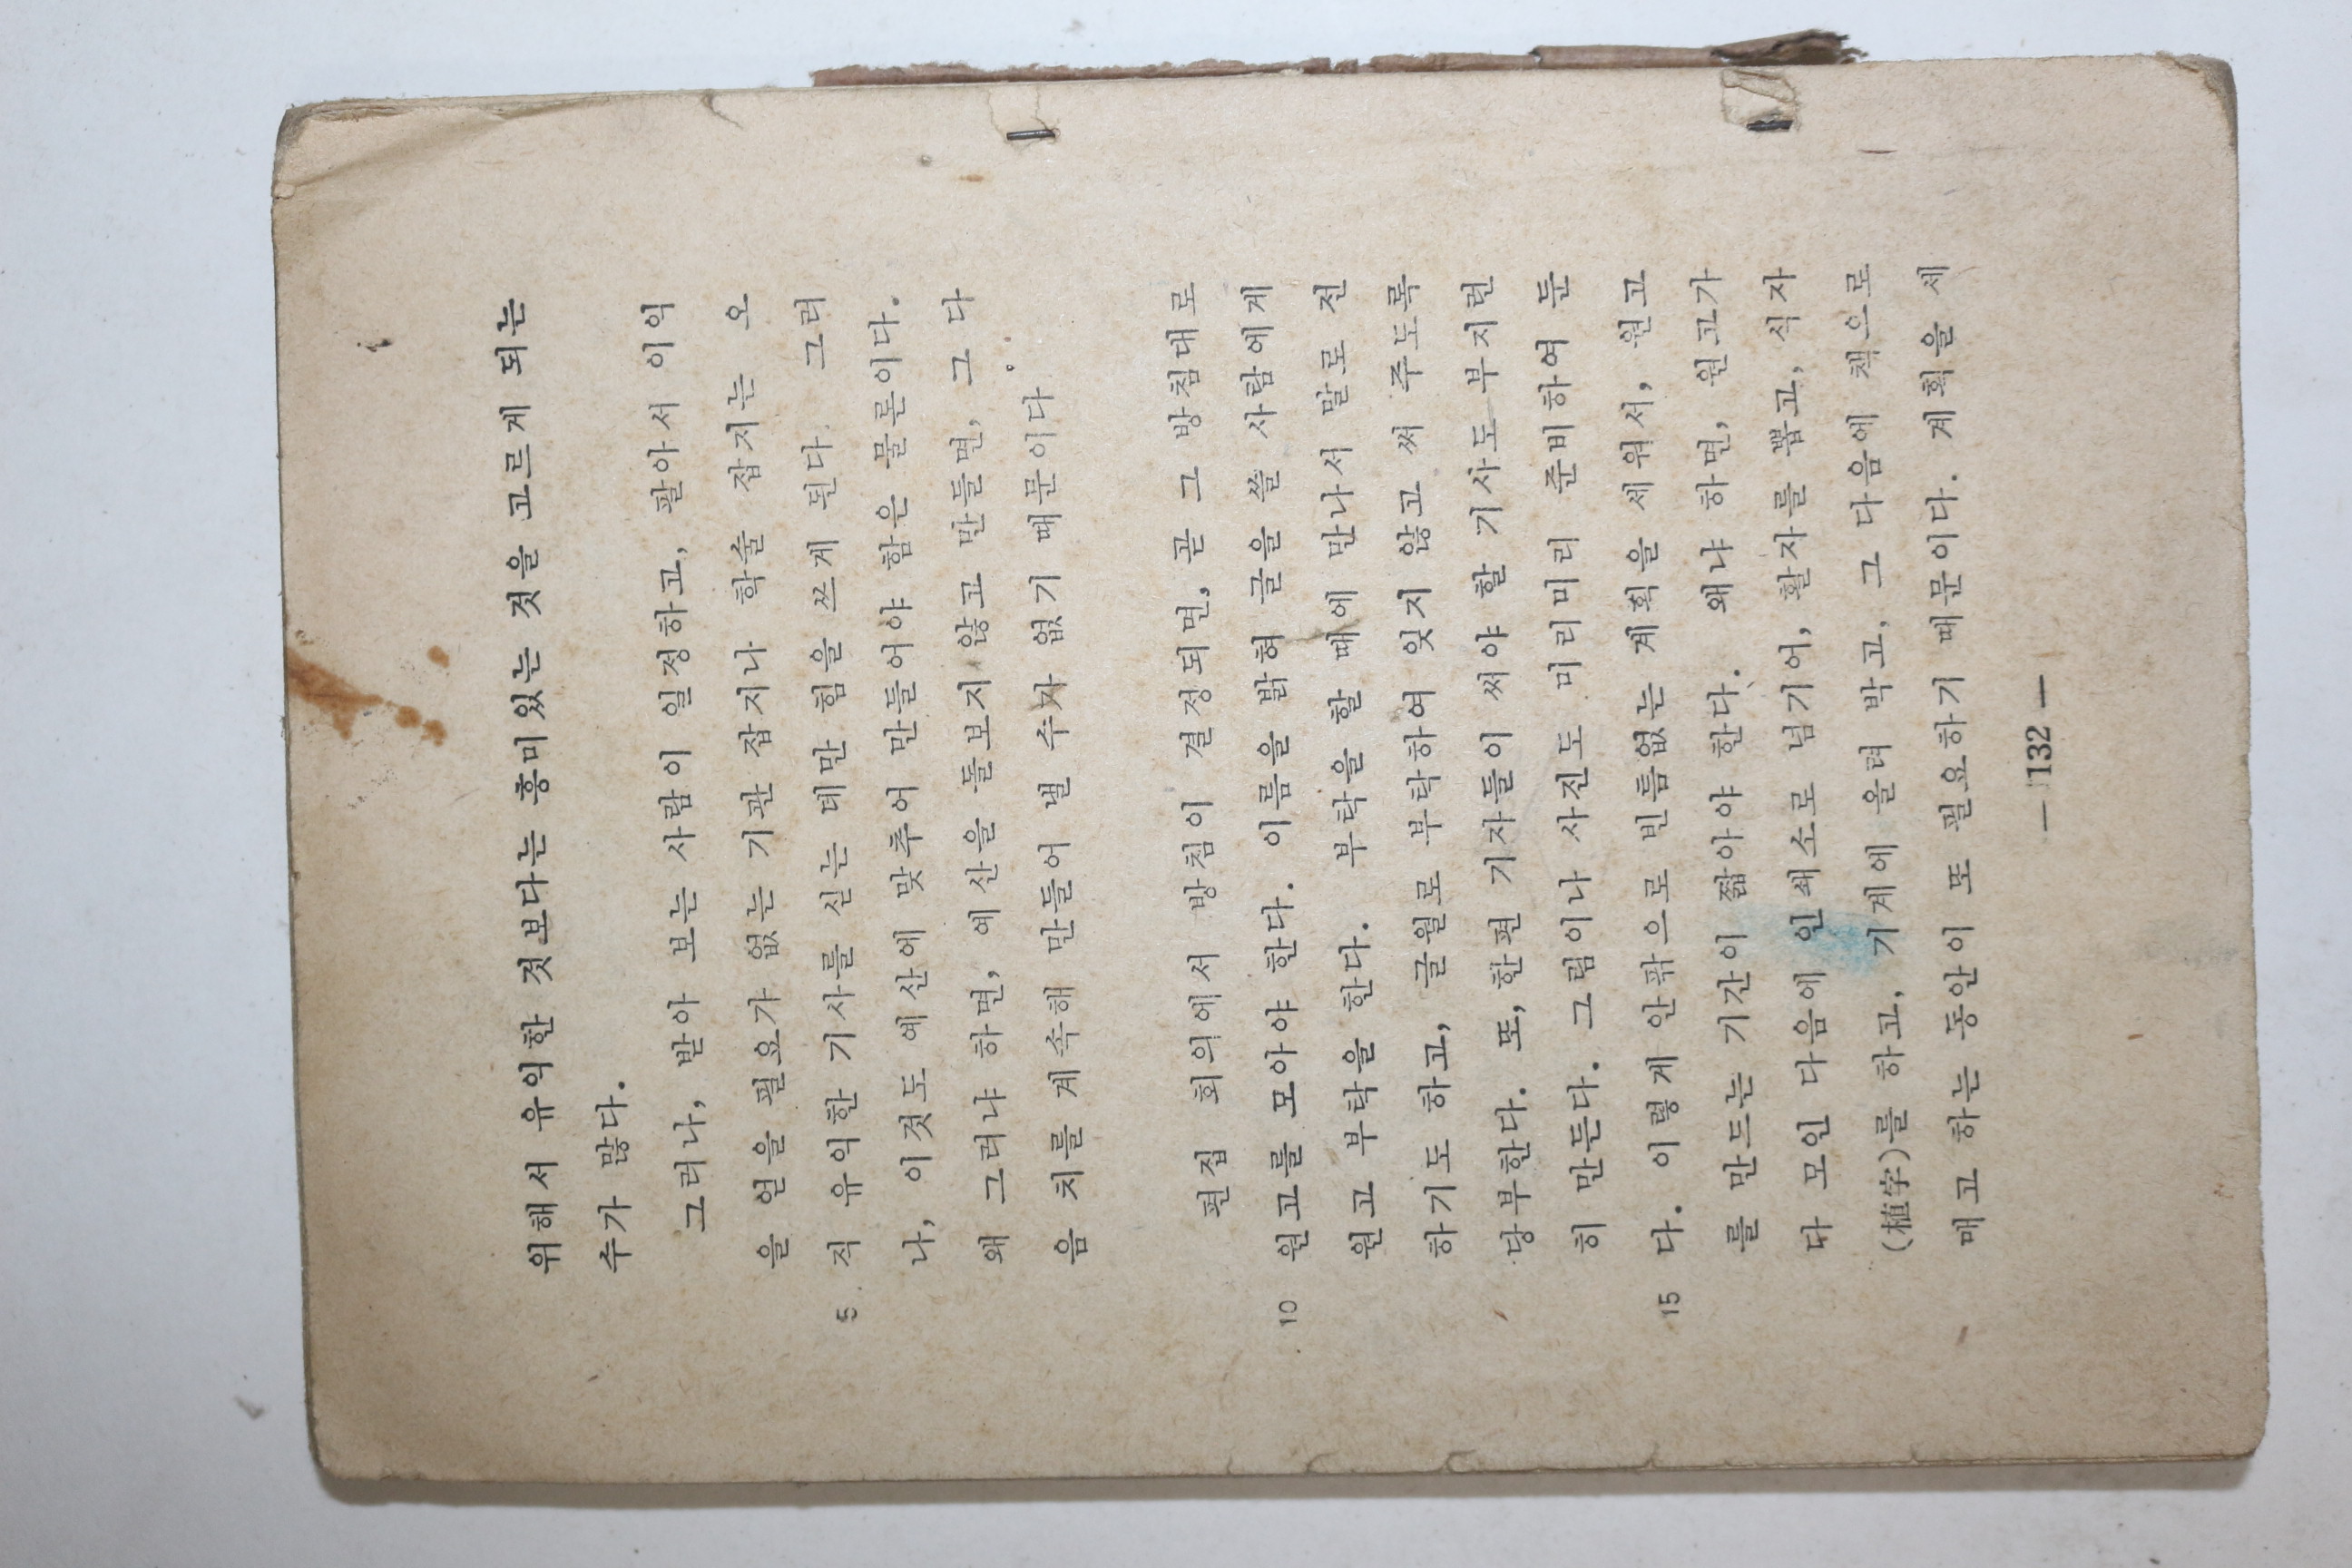 위해서 유익한 것보다는 흥미있는 것을 고르게 되는
수가 많다.
그러나, 받아 보는 사람이 일정하고, 팔아서 이익
을 얻을 필요가 없는 기관 잡지나 학술 잡지는 오
5 직 유익한 기사를 싣는 데만 힘을 쓰게 된다. 그러
나, 이것도 예산에 맞추어 만들어야 함은 물론이다.
왜 그러냐 하면, 예산을 돌보지 않고 만들면, 그 다
음 치를 계속해 만들어 낼 수가 없기 때문이다
편집 회의에서 방침이 결정되면, 곧 그 방침대로
10 원고를 모아야 한다. 이름을 밝혀 글을 쓸 사람에게
원고 부탁을 한다. 부탁을 할 때에 만나서 말로 전
하기도 하고, 글월로 부탁하여 잊지 않고 써 주도록
당부한다. 또, 한편 기자들이 써야 할 기사도 부지런
히 만든다. 그림이나 사진도 미리미리 준비하여 둔
15 다. 이렇게 안팎으로 빈틈없는 계획을 세워서, 원고
를 만드는 기간이 짧아야 한다. 왜냐 하면, 원고가
다 모인 다음에 인쇄소로 넘기어, 활자를 뽑고, 식자
(植字)를 하고, 기계에 올려 박고, 그 다음에 책으로
매고 하는 동안이 또 필요하기 때문이다. 계획을 세
— 132 —